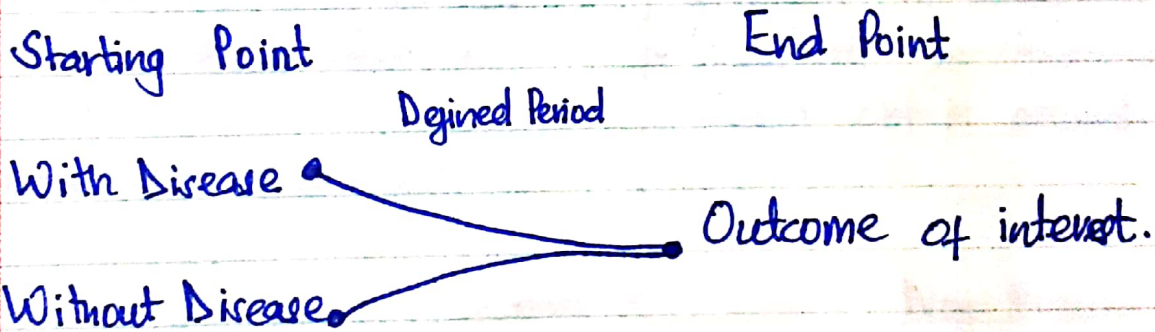 Starting Point End Point
Defined Period
With Disease
Outcome of interest.
Without Disease